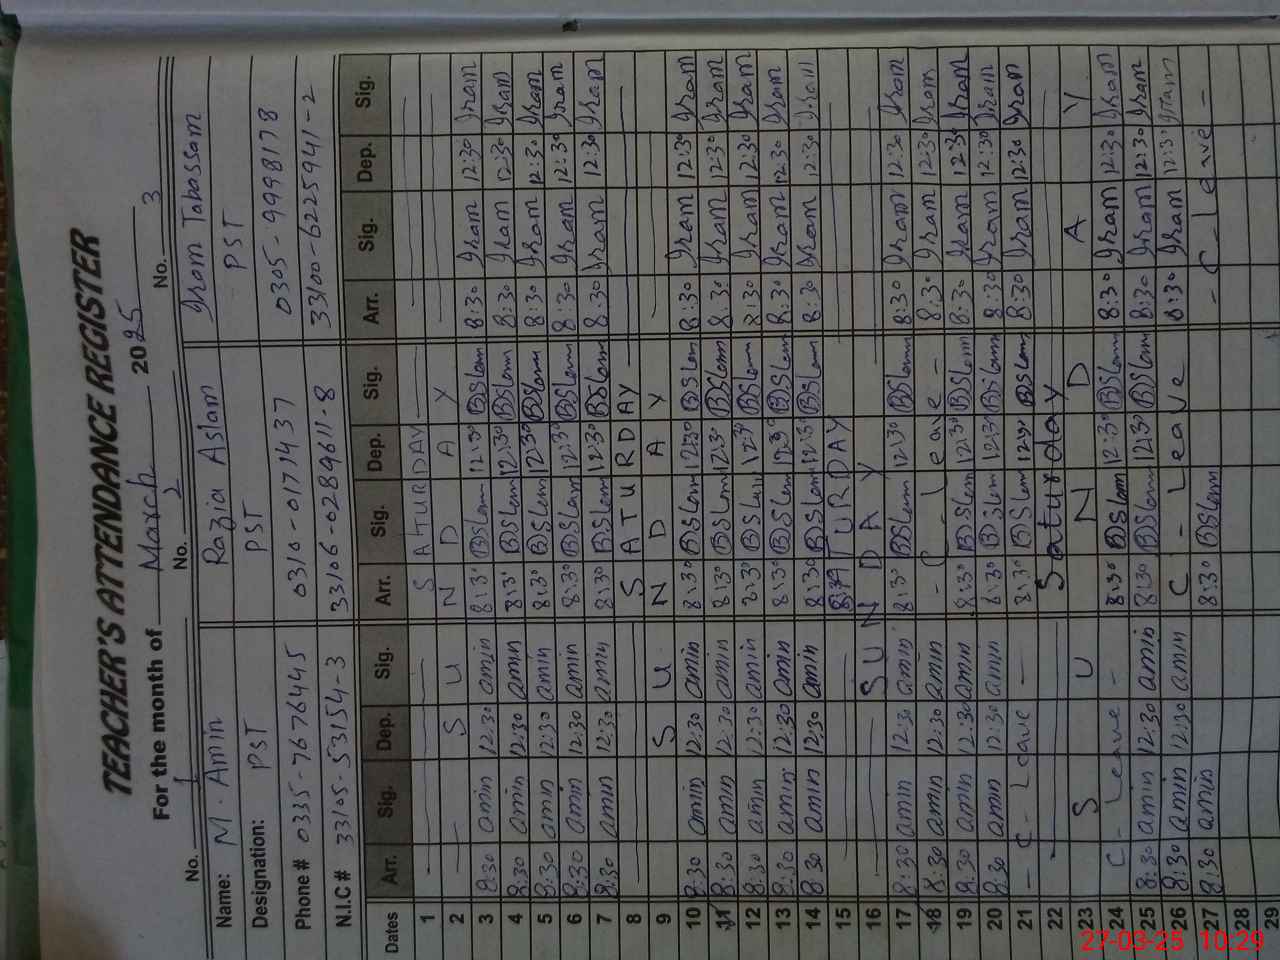 TEACHER'S ATTENDANCE REGISTER
For the month of March 2025
No. 1 No. 2 No. 3
Name: M. Amin Razia Aslam Iram Tabassam
Designation: PST PST PST
Phone # 0335-7676445 0310-0171437 0305-9998178
N.I.C # 33105-553154-3 33106-0289611-8 33100-6225941-2
Dates Arr. Sig. Dep. Sig. Arr. Sig. Dep. Sig. Arr. Sig. Dep. Sig.
1 SATURDAY
2 SUNDAY
3 8:30 amin 12:30 amin 8:3 BSlam 12:30 BSlam 8:30 Iram 12:30 Iram
4 8:30 amin 12:30 amin 8:3 BSlam 12:30 BSlam 8:30 Iram 12:30 Iram
5 8:30 amin 12:30 amin 8:30 BSlam 12:30 BSlam 8:30 Iram 12:30 Iram
6 8:30 amin 12:30 amin 8:30 BSlam 12:30 BSlam 8:30 Iram 12:30 Iram
7 8:30 amin 12:30 amin 8:30 BSlam 12:30 BSlam 8:30 Iram 12:30 Iram
8 SATURDAY
9 SUNDAY
10 8:30 amin 12:30 amin 8:30 BSlam 12:30 BSlam 8:30 Iram 12:30 Iram
11 8:30 amin 12:30 amin 8:30 BSlam 12:30 BSlam 8:30 Iram 12:30 Iram
12 8:30 amin 12:30 amin 8:30 BSlam 12:30 BSlam 8:30 Iram 12:30 Iram
13 8:30 amin 12:30 amin 8:30 BSlam 12:30 BSlam 8:30 Iram 12:30 Iram
14 8:30 amin 12:30 amin 8:30 BSlam 12:30 BSlam 8:30 Iram 12:30 Iram
15 SATURDAY
16 SUNDAY
17 8:30 amin 12:30 amin 8:30 BSlam 12:30 BSlam 8:30 Iram 12:30 Iram
18 8:30 amin 12:30 amin - C - Leave - 8:30 Iram 12:30 Iram
19 8:30 amin 12:30 amin 8:30 BSlam 12:30 BSlam 8:30 Iram 12:30 Iram
20 8:30 amin 12:30 amin 8:30 BSlam 12:30 BSlam 8:30 Iram 12:30 Iram
21 - C - Leave - 8:30 BSlam 12:30 BSlam 8:30 Iram 12:30 Iram
22 Saturday
23 SUNDAY
24 C - Leave - 8:30 BSlam 12:30 BSlam 8:30 Iram 12:30 Iram
25 8:30 amin 12:30 amin 8:30 BSlam 12:30 BSlam 8:30 Iram 12:30 Iram
26 8:30 amin 12:30 amin C - Leave 8:30 Iram 12:30 Iram
27 8:30 amin 8:30 BSlam - C - Leave -
28
29
27-03-25 10:29